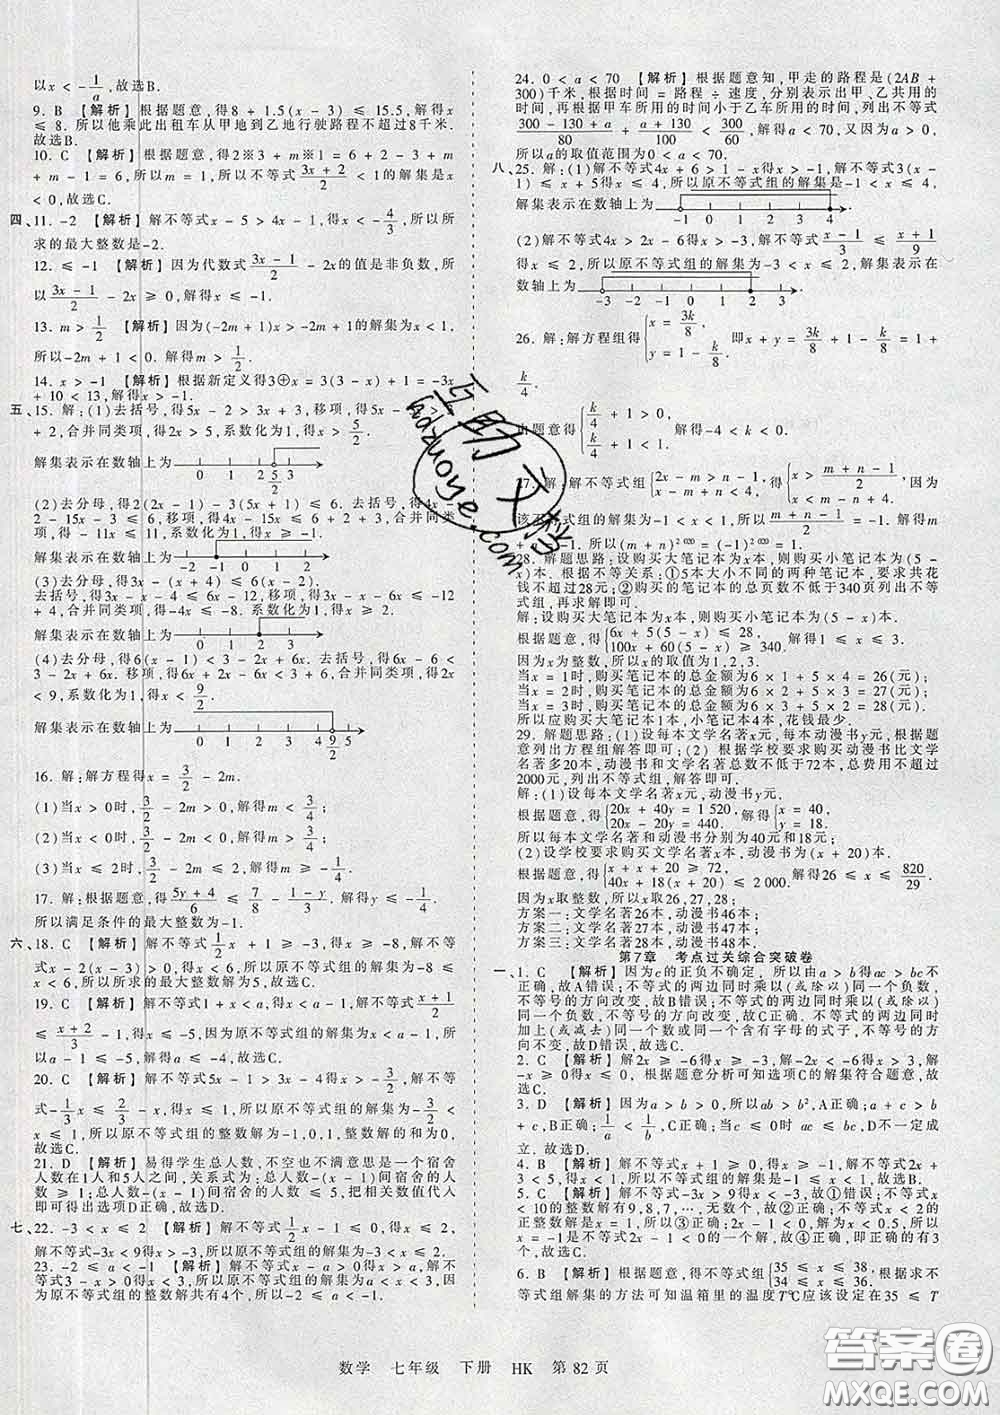 以x < -1/a,故选B.
9. B 【解析】根据题意,得8 + 1.5(x - 3) ≤ 15.5,解得x
≤ 8. 所以他乘此出租车从甲地到乙地行驶路程不超过8千米.
故选B.
10. C 【解析】根据题意,得2※3 + m※1 = 6,所以2 + 3 +
m + m - 1 = 6,所以m = 1,所以不等式(3x + 2)/2 < 1的解集是x
< 0,故选C.
四、11. -2 【解析】解不等式x - 5 > 4x - 1,得x < -4/3,所以所
求的最大整数是-2.
12. ≤ -1 【解析】因为代数式(3x - 1)/2 - 2x的值是非负数,所
以(3x - 1)/2 - 2x ≥ 0,解得x ≤ -1.
13. m > 1/2 【解析】因为(-2m + 1)x > -2m + 1的解集为x < 1,
所以-2m + 1 < 0. 解得m > 1/2.
14. x > -1 【解析】根据新定义得3⊕x = 3(3 - x) + 1 = -3x
+ 10 < 13,解得x > -1.
五、15. 解:(1)去括号,得5x - 2 > 3x + 3,移项,得5x -
+ 2,合并同类项,得2x > 5,系数化为1,得x > 5/2.
解集表示在数轴上为 0 1 2 5/2 3
(2)去分母,得2(2x - 1) - 3(5x + 1) ≤ 6. 去括号,得4x -
2 - 15x - 3 ≤ 6,移项,得4x - 15x ≤ 6 + 2 + 3,合并同类
项,得 - 11x ≤ 11,系数化为1,得x ≥ -1.
解集表示在数轴上为 -2 -1 0 1 2
(3)去分母,
去括号,得3x - 4x - 4 ≤ 6x - 6 - 12,
得3x - 4x - 6x ≤ -6 - 12 + 4,
得-
解集表示在数轴上为 0 1 2 3
(4)去分母,得6(x - 1) < 3 - 2x + 6x. 去括号,得6x - 6 <
3 - 2x + 6x. 移项,得6x + 2x - 6x < 3 + 6,合并同类项,得2x
< 9,系数化为1,得x < 9/2.
解集表示在数轴上为 0 1 2 3 4 9/2 5
16. 解:解方程得x = 3/2 - 2m.
(1)当x > 0时,3/2 - 2m > 0,解得m < 3/4;
(2)当x < 0时,3/2 - 2m < 0,解得m > 3/4;
(3)当x ≤ 2时,3/2 - 2m ≤ 2,解得m ≥ -1/4.
17. 解:根据题意,得(5y + 4)/6 ≤ 7/8 - (1 - y)/3,解得y ≤ -1/4,
所以满足条件的最大整数为-1.
六、18. C 【解析】解不等式1/2x + 1 ≥ -3,得x ≥ -8,解不等式
x - 2(x - 3) > 0,得x < 6,故最大整数解为5,故选C.
19. C 【解析】解不等式
(x + 2)/3 - 5 < -6,得x < -5,因为原不等式组的解集为x < a - 1,所
以a - 1 ≤ -5,解得a ≤ -4,故选C.
20. C 【解析】解不等式5x - 1 > 3x - 4,得x > -3/2,解不
等式-1/3x ≤ 2/3 - x,得x ≤ 1,所以不等式组的解集为-3/2 <
x ≤ 1,所以不等式组的整数解为-1,0,1,故选C.
21. D 【解析】易得学生总人数,不空也不满意思是一个宿舍
人数在1人和5人之间,关系式为:总人数-(x - 1)间宿舍的人
数 ≥ 1;总人数-(x - 1)间宿舍的人数 ≤ 5,把相关数值代入
即可得出选项D正确,故选D.
七、22. -3 < x ≤ 2 【解析】解不等式1/2x - 1 ≤ 0,得x ≤ 2,
解不等式-3x < 9,得x > -3,所以不等式组的解集为-3 < x ≤ 2.
23. -2 ≤ a < -1 【解析】解不等式x - a > 0,得x > a,解不
等式3 - x > 0得x < 3,所以原不等式组的解集为a < x < 3,因
为原不等式组的整数解共有4个,所以-2 ≤ a < -1.
24. 0 < a < 70 【解析】根据题意知,甲走的路程是(2AB +
300)千米,根据时间 = 路程 ÷ 速度,分别表示出甲、乙共用的
时间,再根据甲车所用的时间小于乙车所用的时间,列出不等式
(300 - 130 + a)/80 + (a + 130)/100 < 300/60,解得a < 70,又因为a > 0,
所以a的取值范围为0 < a < 70.
八、25. 解:(1)解不等式4x + 6 > 1 - x得x > -1,解不等式3(x -
1) ≤ x + 5得x ≤ 4,所以原不等式组的解集是-1 < x ≤ 4,
解集表示在数轴上为 -1 0 1 2 3 4
(2)解不等式4x > 2x - 6得x > -3,解不等式(x - 1)/3 ≤ (x + 1)/9
得x ≤ 2,所以原不等式组的解集为-3 < x ≤ 2,解集表示在
数轴上为 -3 -2 -1 0 1 2 3
26. 解:解方程组得{x = 3k/8, y = 1 - k/8, 即x + y = 3k/8 + 1 - k/8
k/4.
由题意得{k/4 + 1 > 0, k/4 + 1 < 1. 解得-4 < k < 0.
27. 解:解不等式组{2x - m > n - 1, 2x - m < n + 1得{x > (m + n - 1)/2, x < (m + n + 1)/2, 因为
该不等式组的解集为-1 < x < 1,所以(m + n - 1)/2 = -1. 解得
m + n = -1. 所以(m + n)
28. 解题思路:设购买大笔记本为x本,则购买小笔记本为(5 -
x)本. 根据不等关系:①5本大小不同的两种笔记本,要求共花
钱不超过28元;②购买的笔记本的总页数不低于340页列出不等
式组,再求解即可.
解:设购买大笔记本为x本,则购买小笔记本为(5 - x)本.
根据题意,得{6x + 5(5 - x) ≤ 28, 100x + 60(5 - x) ≥ 340. 解得1 ≤ x ≤ 3.
因为x为整数,所以x的取值为1,2,3.
当x = 1时,购买笔记本的总金额为6 × 1 + 5 × 4 = 26(元);
当x = 2时,购买笔记本的总金额为6 × 2 + 5 × 3 = 27(元);
当x = 3时,购买笔记本的总金额为6 × 3 + 5 × 2 = 28(元).
所以应购买大笔记本1本,小笔记本4本,花钱最少.
29. 解题思路:(1)设每本文学名著x元,动漫书y元,根据题
意列出方程组解答即可;(2) 根据学校要求购买动漫书比文学
名著多20本,动漫书和文学名著总数不低于72本,总费用不超过
2000元,列出不等式组,解答即可.
解:(1)设每本文学名著x元,动漫书y元,
根据题意,得{20x + 40y = 1 520, 20x - 20y = 440. 解得{x = 40, y = 18.
所以每本文学名著和动漫书分别为40元和18元;
(2)设学校要求购买文学名著x本,动漫书为(x + 20)本.
根据题意,得{x + x + 20 ≥ 72, 40x + 18(x + 20) ≤ 2 000. 解得26 ≤ x ≤ 820/29.
因为x取整数,所以x取26,27,28.
方案一:文学名著26本,动漫书46本;
方案二:文学名著27本,动漫书47本;
方案三:文学名著28本,动漫书48本.
第7章 考点过关综合突破卷
一、1. C 【解析】因为c的正负不确定, 所以由a > b得ac > bc不成
立,故A错误;不等式的两边同时乘以(或除以)同一个负数,
不等号的方向改变,故B错误;不等式的两边同时乘以(或除以)
同一个正数,不等号的方向不变,故C正确.不等式的两边同时
加上(或减去)同一个数或同一个含有字母的式子,不等号的方
向不变,故D错误,故选C.
2. C 【解析】解2x ≥ -6得x ≥ -3,解x
根据题意分析可知选项C的解集符合题意,故
选C.
3. D 【解析】因为a > b > 0,所以ab > b²,A正确;a + c > b
+ c,B正确;1/a < 1/b,C正确;当c ≤ 0时 ac ≤ bc,D不一定成
立,故选D.
4. B 【解析】解不等式x + 1 ≥ 0,得x ≥ -1,
5. C 【解析】解不等式-
< 10的整数解有9,8,7,…,无数个,故②正确;
的正整数解是x < 5,所以③正确;
x = -1是不等式 所以④正确,即正确的有3
个,故选C.
6. B 【解析】根据题意,得不等式组{35 ≤ x ≤ 38, 34 ≤ x ≤ 36. 根据求不
等式组解集的方法可知温箱里的温度T℃应该设定在35 ≤ T
互助文档
hdzuoye.com
答案圈
MXQE.COM
数学 七年级 下册 HK 第 82 页